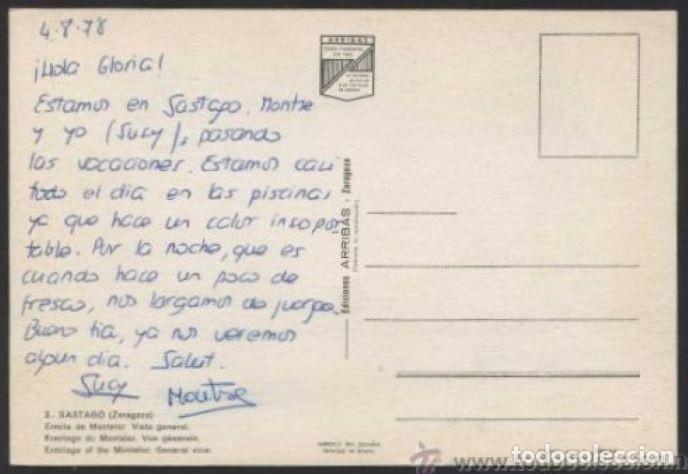 4-8-78
¡Hola Gloria!
Estamos en Sastago. Montse
y yo (Sucy), pasando
las vacaciones. Estamos casi
todo el día en las piscinas
ya que hace un calor insopor
table. Por la noche, que es
cuando hace un poco de
fresco, nos largamos de juerga.
Bueno tia, ya nos veremos
algun dia. Salut.
Sucy Montse
3. - SASTAGO (Zaragoza)
Ermita de Montelor Vista general.
Ermitage du Montelor. Vue générale.
Ermitage of the Montelor. General view.
ARRIBAS
Ediciones ARRIBAS - Zaragoza
todocoleccion